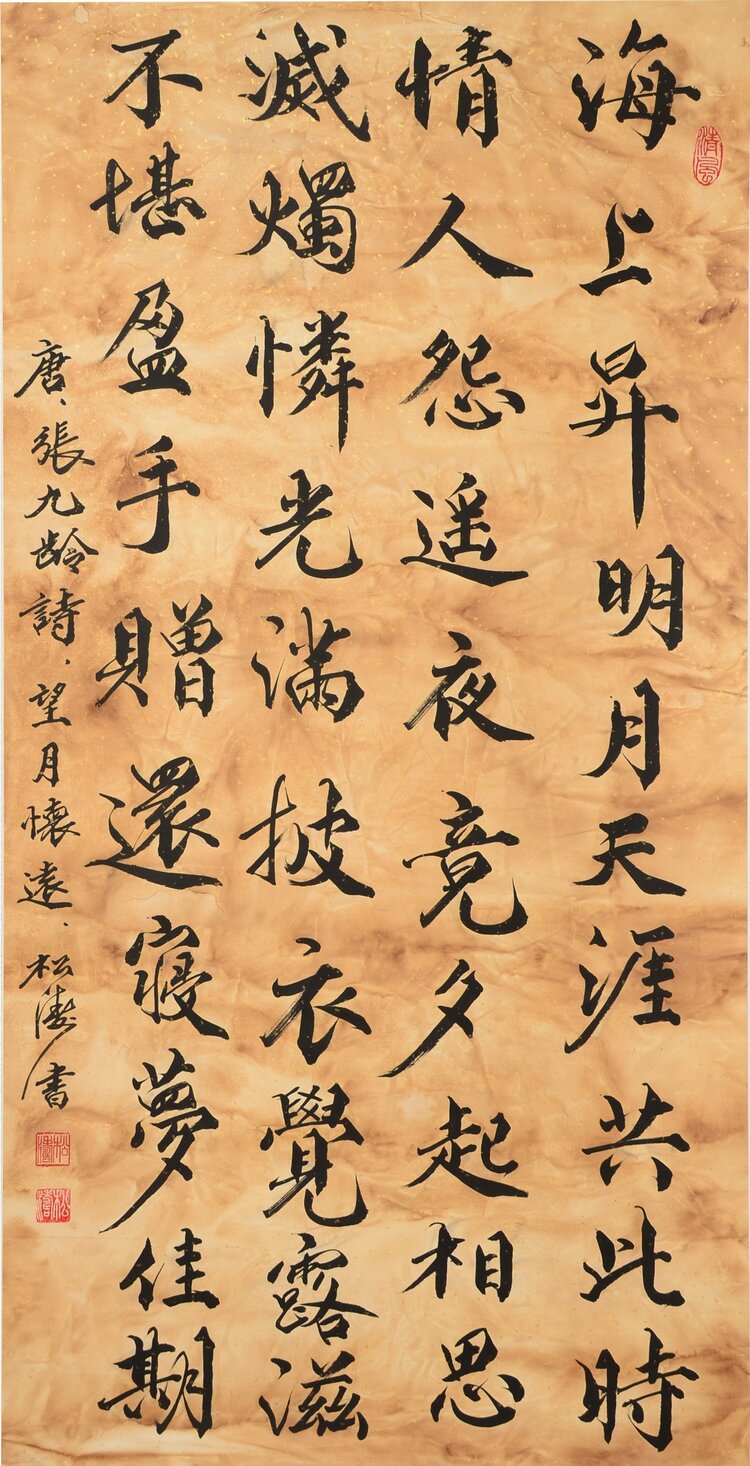 海上昇明月天涯共此時
情人怨遥夜竟夕起相思
滅燭憐光滿披衣覺露滋
不堪盈手贈還寝夢佳期
唐、張九齡詩、望月懷遠、松濤書
清風
松濤
松濤